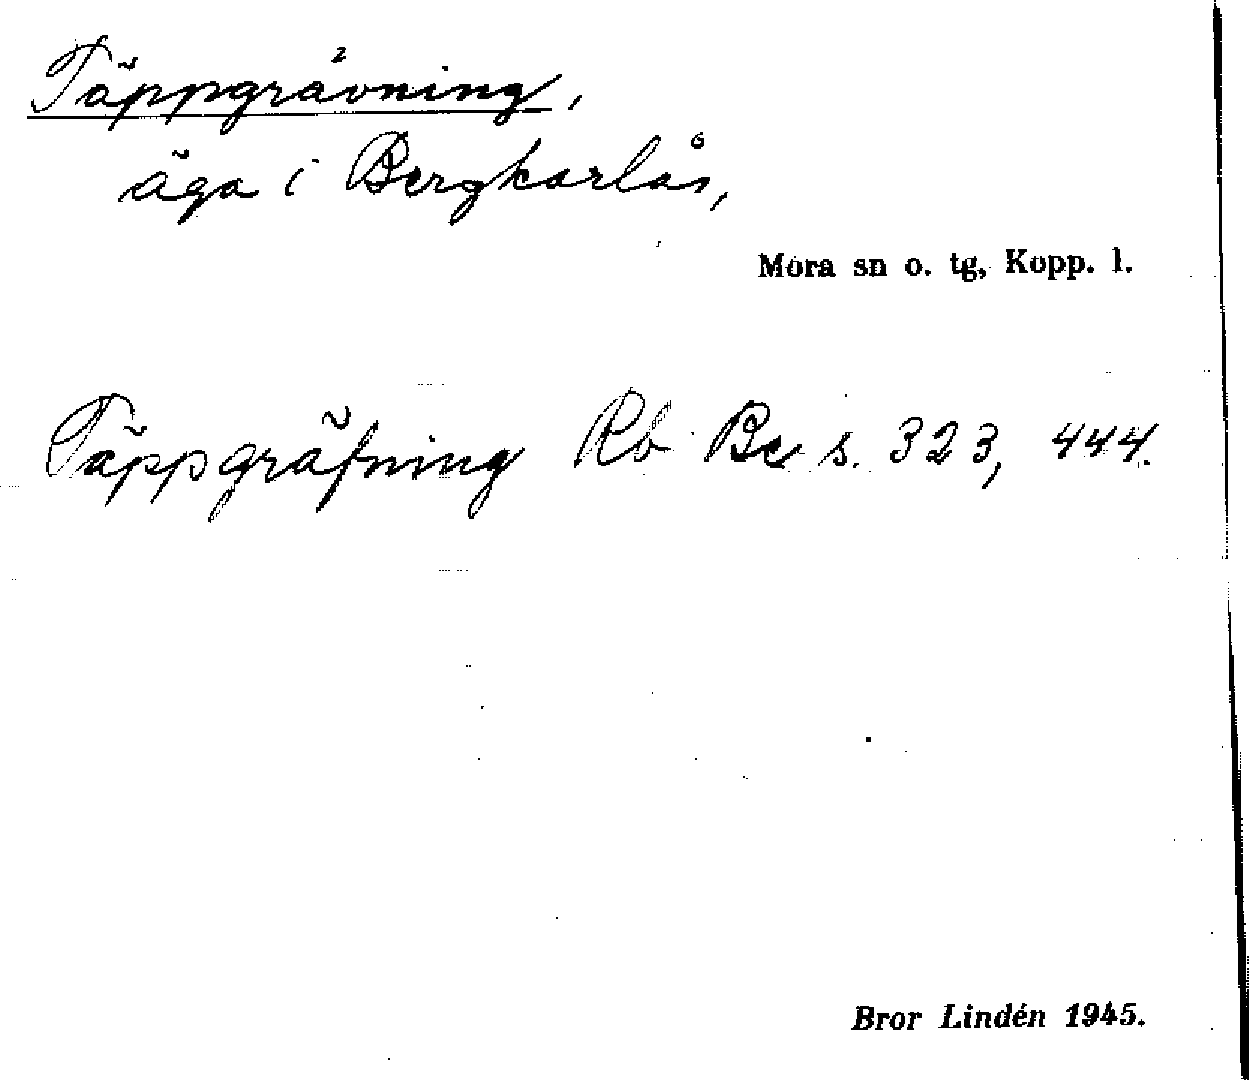 Täppgrävning,
äga i Bergkarlås,
Mora sn o. tg, Kopp. l.
Täppgräfning Rb Be s. 323, 444.
Bror Lindén 1945.